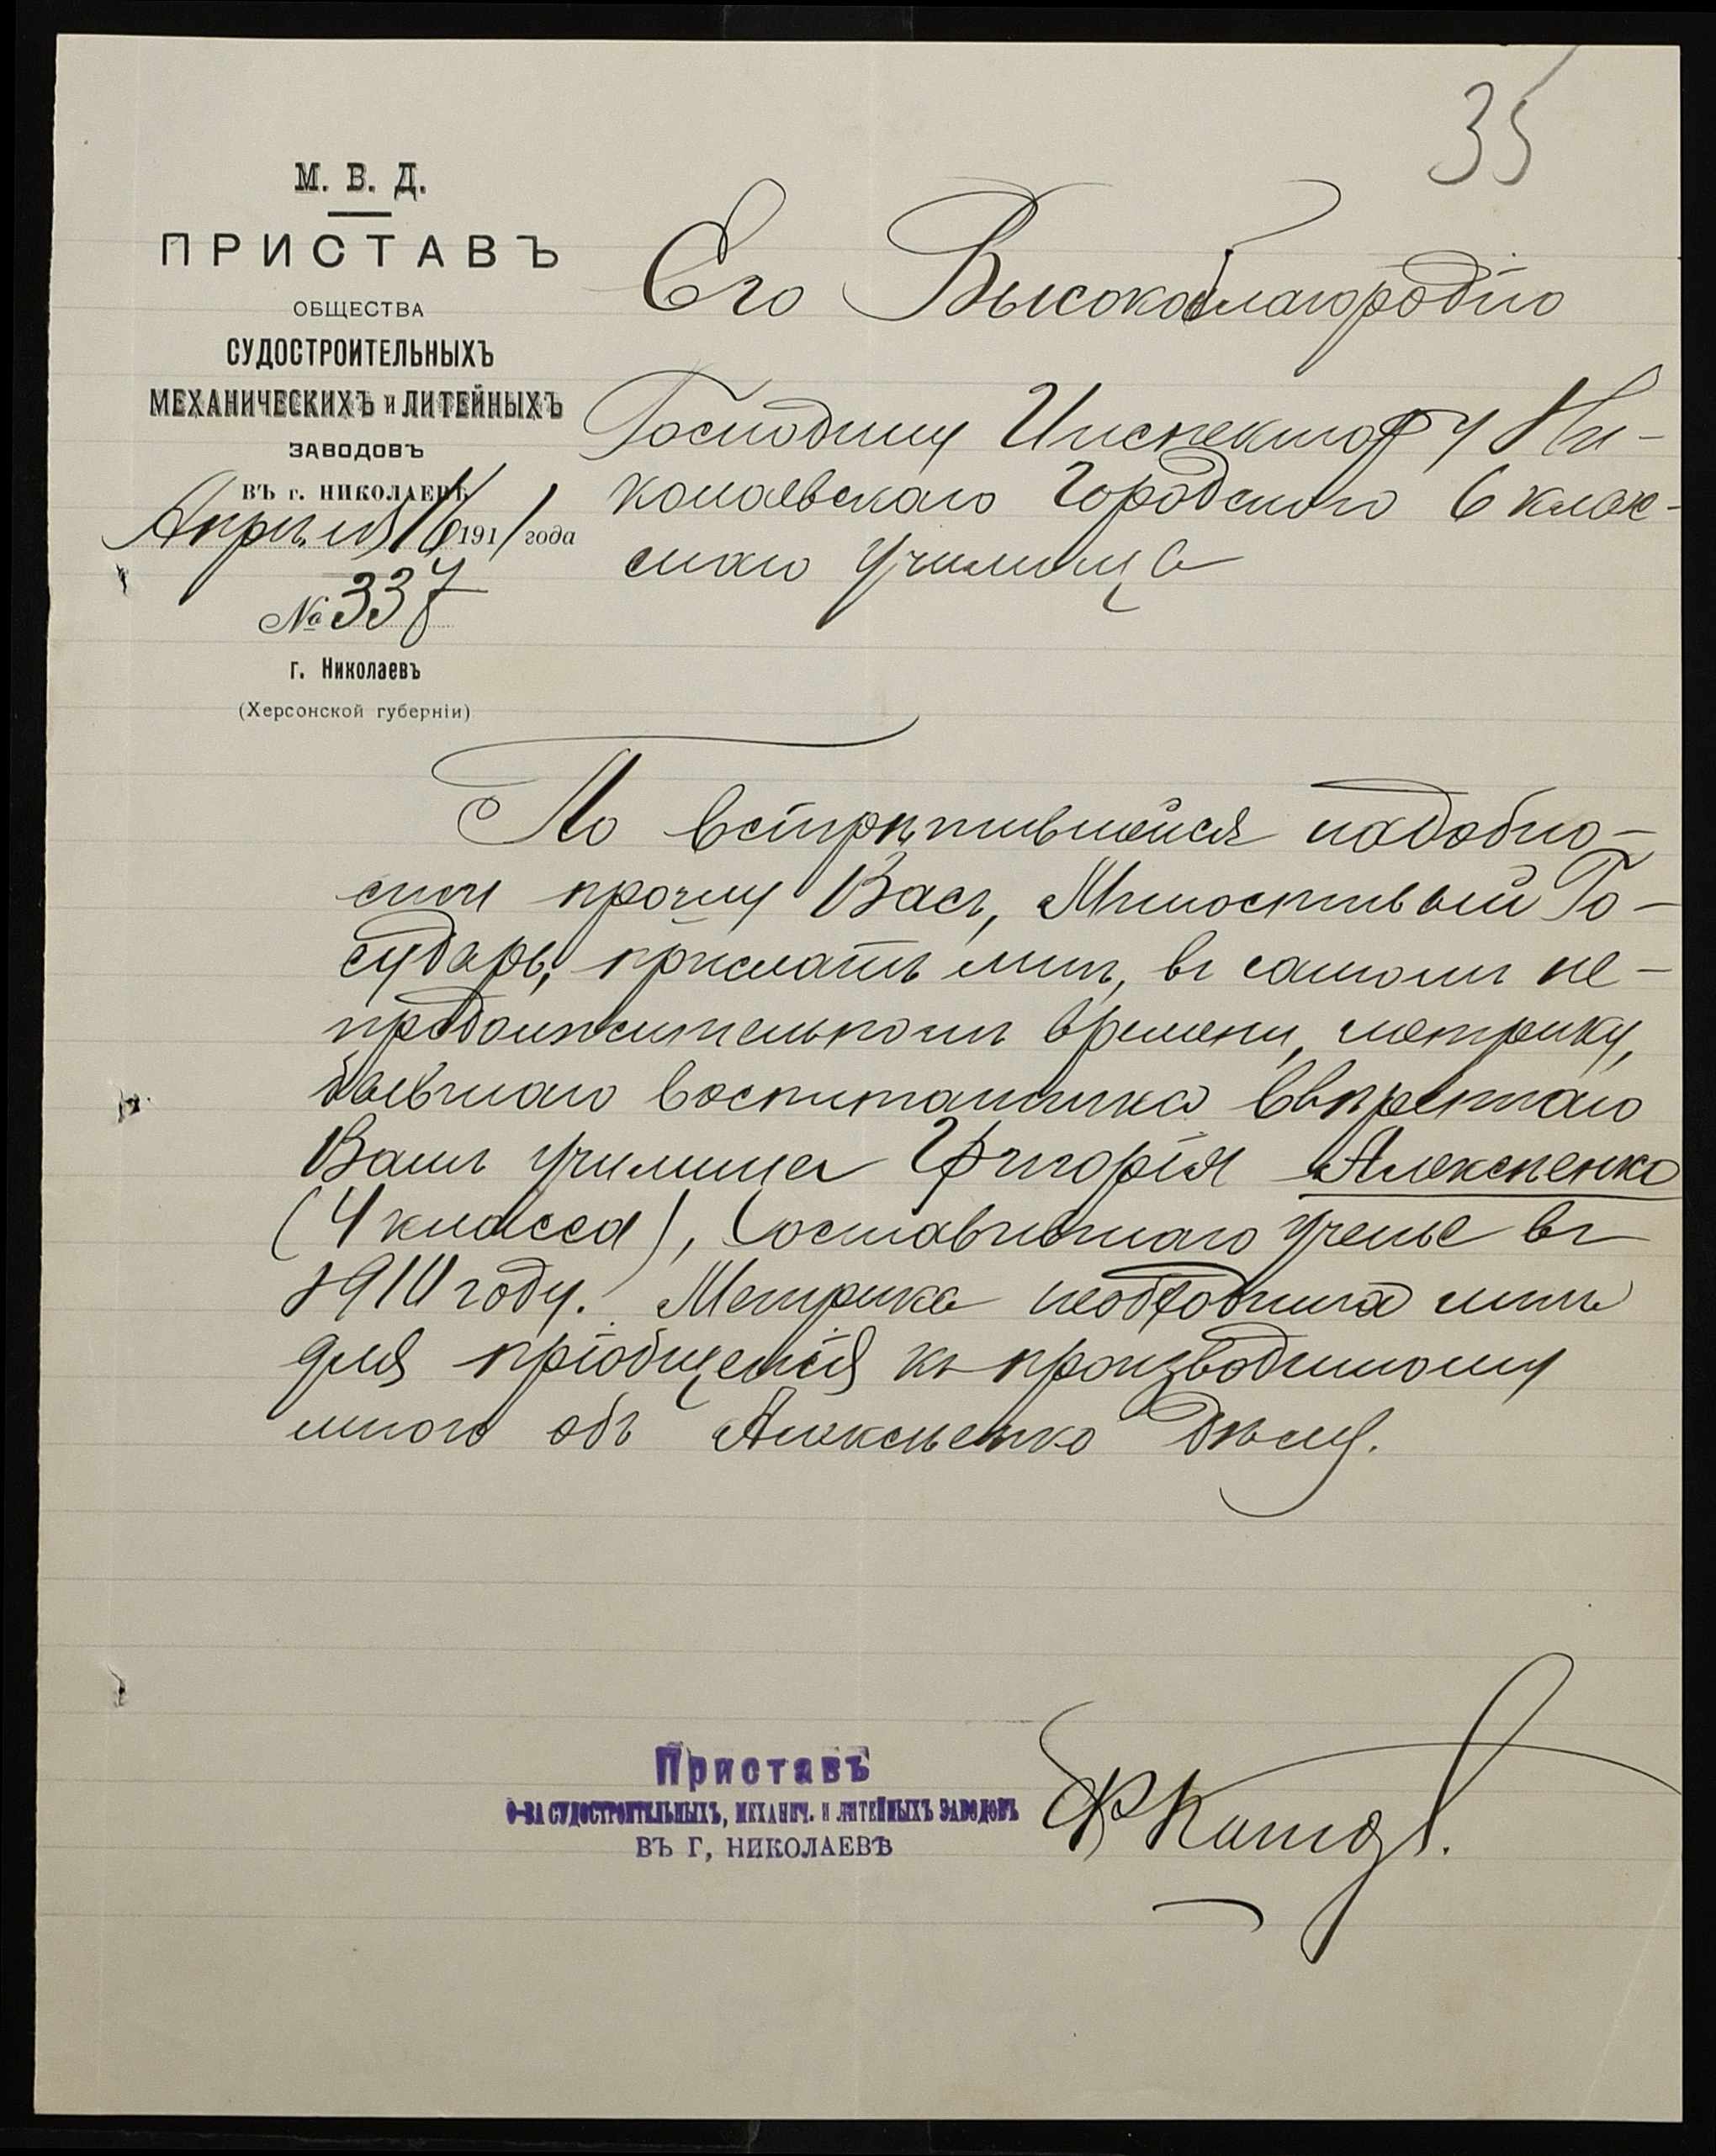 35
М. В. Д.
ПРИСТАВЪ
ОБЩЕСТВА
СУДОСТРОИТЕЛЬНЫХЪ
МЕХАНИЧЕСКИХЪ и ЛИТЕЙНЫХЪ
ЗАВОДОВЪ
ВЪ г. НИКОЛАЕВѢ
Апрѣля 16 1911 года
№ 337
г. Николаевъ
(Херсонской губерніи)
Его Высокоблагородію
Господину Инспектору Ни-
колаевскаго Городского 6 клас-
снаго Училища
По встрѣтившейся надобно-
сти прошу Васъ, Милостивый Го-
сударь, прислать мнѣ, въ самомъ не-
продолжительномъ времени, метрику,
бывшаго воспитанника ввѣреннаго
Вамъ училища Григорія Алексѣенко
(4 класса), оставившаго ученье въ
1910 году. Метрика необходима мнѣ
для пріобщенія къ производимому
мною объ Алексѣенко дѣлу.
Приставъ
О-ВА СУДОСТРОИТЕЛЬНЫХЪ, МЕХАНИЧ. И ЛИТЕЙНЫХЪ ЗАВОДОВЪ
ВЪ Г, НИКОЛАЕВѢ